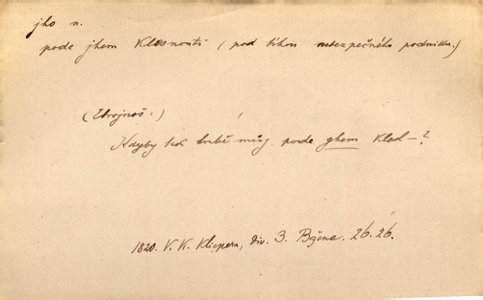 jho n.
pode jhem klesnouti (pod tíhou nebezpečného podniku.)
(Zbrojnoš:)
Kdyby tak hrabě můj pode jhem klesl —?
1820. V. K. Klicpera, div. 3. Božena. 26. 26.